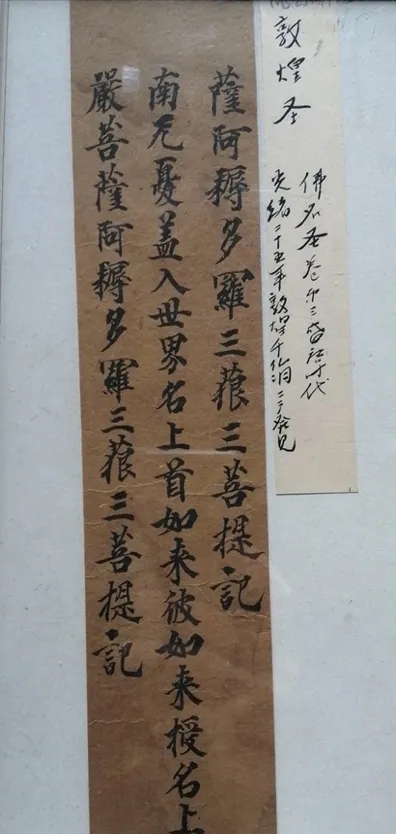 敦煌圣
佛名圣卷 三 時代
光緒二十五年敦煌千仏洞ニテ発見
薩阿耨多羅三藐三菩提記
南无憂盖入世界名上首如来彼如来授名上
嚴菩薩阿耨多羅三藐三菩提記